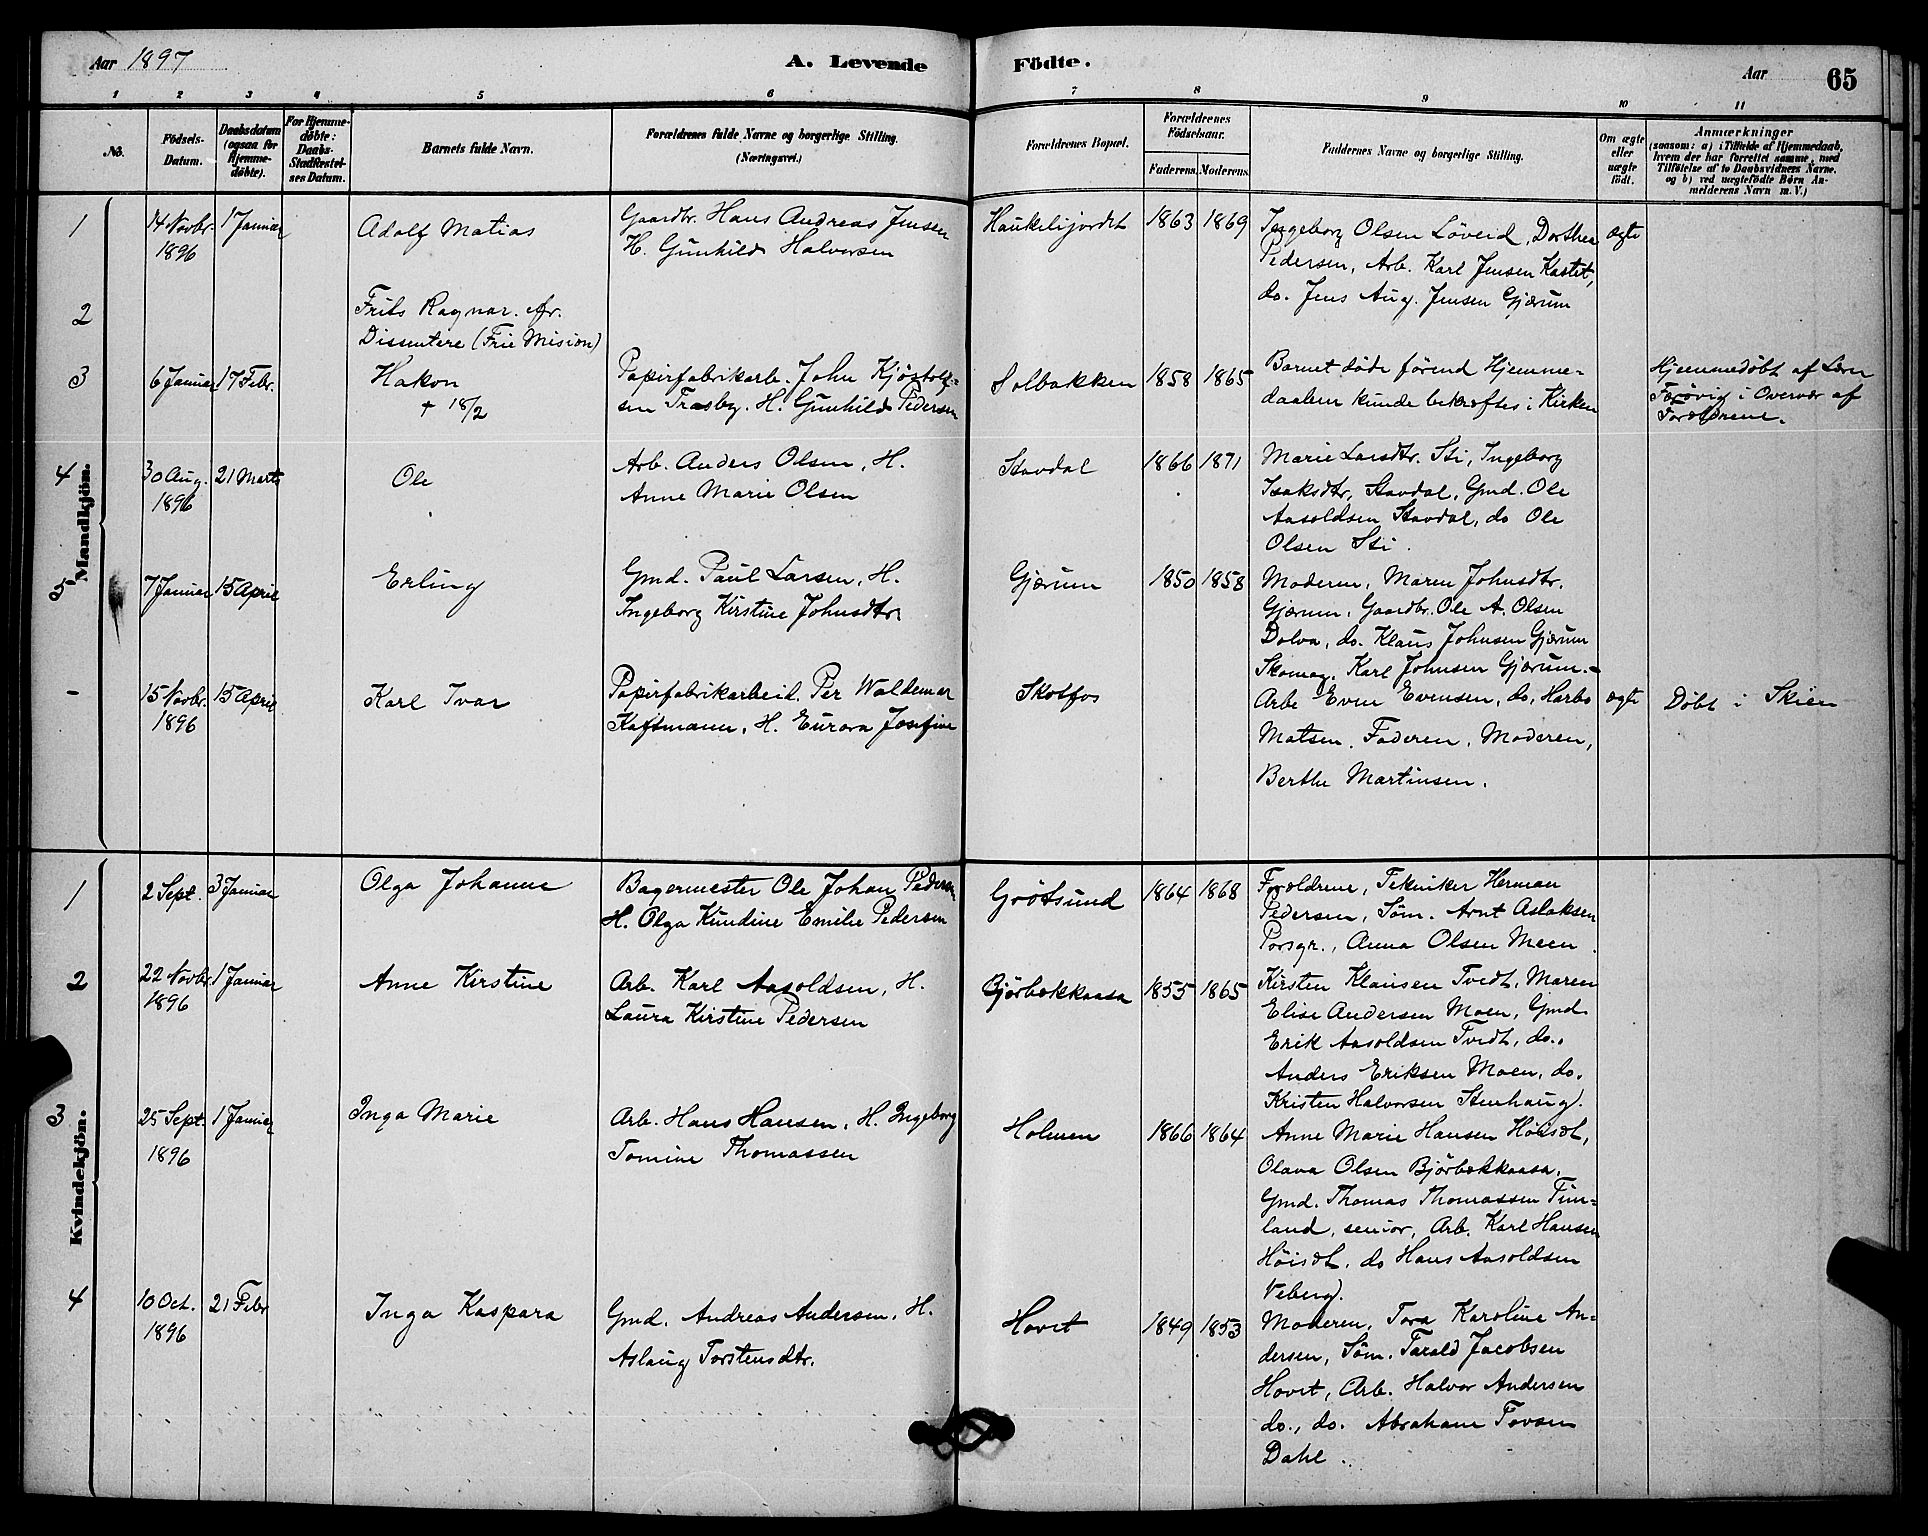 Aar 1897
A. Levende
Födte.
Aar
65
1 2 3 4 5 6 7 8 9 10 11
No.
Födsels-
Datum.
Daabsdatum
(ogsaa for
Hjemme-
döbte).
For Hjemme-
döbte:
Daabs-
Stadfæstel-
ses Datum.
Barnets fulde Navn.
Forældrenes fulde Navne og borgerlige Stilling.
(Næringsvei.)
Forældrenes Bopæl.
Forældrenes
Födselsaar.
Faderens. Moderens.
Faddernes Navne og borgerlige Stilling.
Om ægte
eller
uægte
födt.
Anmærkninger
(saasom: a) i Tilfælde af Hjemmedaab,
hvem der har forrettet samme, med
Tilföielse af to Daabsvidners Navne.
og b) ved uægtefödte Börn An-
melderens Navn m. V.)
Mandkjön.
1
14 Novbr.
1896
1 Januar
Adolf Matias
Gaardbr. Hans Andreas Jensen
H. Gunhild Halvorsen
Haukelijordet
1863 1869
Ingeborg Olsen Löveid, Dorthea
Pedersen, Arb. Karl Jensen Kastet,
do. Jens Aug. Jensen Gjærum
ægte
2
Frits Ragnar. Afr.
Dissentere (Frie Mision)
3
6 Januar
17 Febr.
Hakon
+ 18/2
Papirfabrikarb. John Kjöstolf-
sen Trasby. H. Gunhild Pedersen
Solbakken
1858 1865
Barnet döde förend Hjemme-
daaben kunde bekræftes i Kirken
Hjemmedöbt af Lærer
i Overvær af
Forældrene.
4
30 Aug.
1896
21 Marts
Ole
Arb. Anders Olsen, H.
Anne Marie Olsen
Stavdal
1866 1871
Marie Larsdtr. Sti, Ingeborg
Isaksdtr. Stavdal, Gmd. Ole
Aasoldsen Stavdal, do Ole
Olsen Sti.
5
7 Januar
15 April
Erling
Gmd. Paul Larsen, H.
Ingeborg Kirstine Johnsdtr.
Gjærum
1850 1858
Moderen, Maren Johnsdtr.
Gjærum, Gaardbr. Ole A. Olsen
Dolva, do. Klaus Johnsen Gjærum
Skomag. Karl Johnsen Gjærum.
-
15 Novbr.
1896
15 April
Karl Ivar
Papirfabrikarbeid. Per Waldemar
Kaftmann, H. Eurora Josefine
Skotfos
Arbe Even Evensen, do. Harbo
Matsen, Faderen, Moderen,
Berthe Martinsen.
ægte
Döbt i Skien
Kvindekjön.
1
2 Sept.
3 Januar
Olga Johanne
Bagermester Ole Johan Pedersen
H. Olga Kundine Emilie Pedersen
Grötsund
1864 1868
Forældrene, Tekniker Herman
Pedersen, Söm. Arnt Aslaksen
Porsgr., Anna Olsen Meen.
2
22 Novbr.
1896
1 Januar
Anne Kirstine
Arb. Karl Aasoldsen, H.
Laura Kirstine Pedersen
Bjørbækkaasa
1855 1865
Kirsten Klausen Tvedt, Maren
Elise Andersen Moen, Gmd.
Erik Aasoldsen Tvedt, do.,
Anders Eriksen Moen, do.
Kristen Halvorsen Stenhaug.
3
25 Sept.
1896
1 Januar
Inga Marie
Arb. Hans Hansen, H. Ingeborg
Tomine Thomassen
Holmen
1866 1864
Anne Marie Hansen Höisdt,
Olava Olsen Bjørbækkaasa,
Gmd. Thomas Thomassen Tim-
land, senior, Arb. Karl Hansen
Höisdt, do Hans Aasoldsen
Veberg.
4
10 Oct.
1896
21 Febr
Inga Kaspara
Gmd. Andreas Andersen, H.
Aslaug Torstensdtr.
Hovet
1849 1853
Moderen, Tora Karoline An-
dersen, Söm. Tarald Jacobsen
Hovet, Arb. Halvor Andersen
do., do. Abraham Tovsen
Dahl.